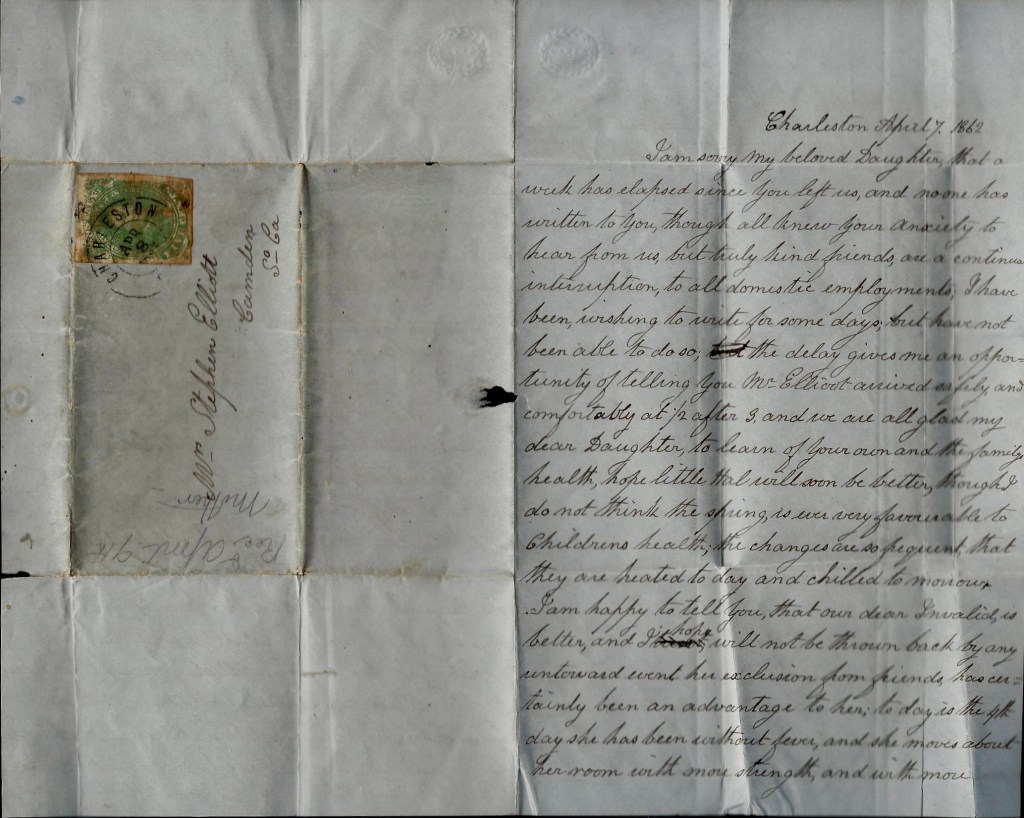 CHARLESTON
APR
8
Wm Stephen Elliott
Camden
So Ca
Mother
Rec April 9th
Charleston April 7. 1862
I am sorry my beloved Daughter, that a
week has elapsed since you left us, and no one has
written to you, though all knew your anxiety to
hear from us, but truly kind friends, are a continual
interruption, to all domestic employments; I have
been, wishing to write for some days, but have not
been able to do so; but the delay gives me an oppor=
tunity of telling you Mr Elliott arrived safely, and
comfortably at 1/2 after 3. and we are all glad my
dear Daughter, to learn of your own and the family
health, hope little Hal will soon be better, though I
do not think the spring, is ever very favourable to
Childrens health; the changes are so frequent, that
they are heated to day and chilled to morrow.
I am happy to tell you, that our dear Invalid, is
better, and I hope will not be thrown back by any
untoward event her exclusion from friends, has cer=
tainly been an advantage to her; to day is the 4th
day she has been without fever, and she moves about
her room with more strength, and with more